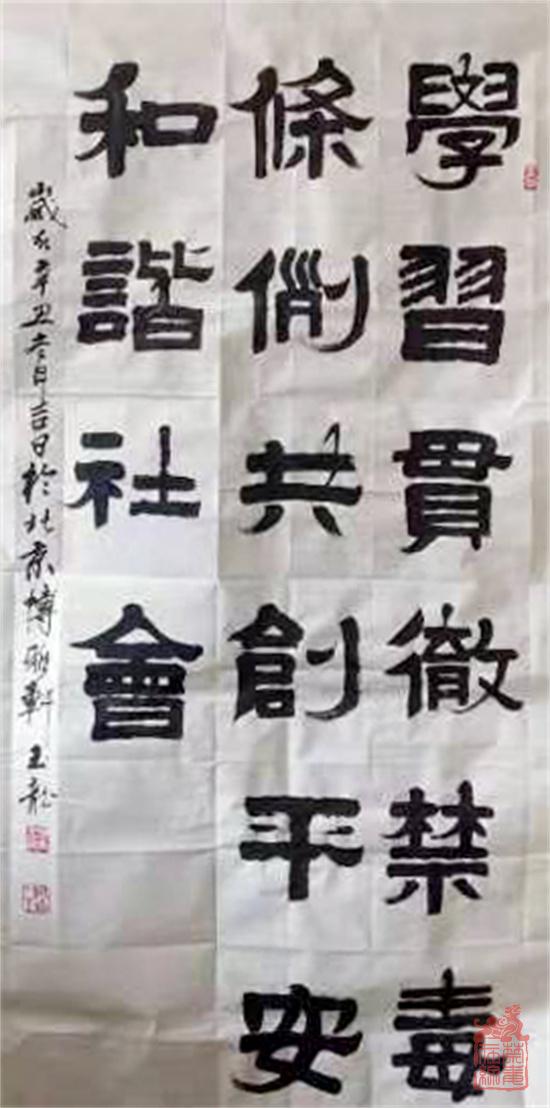 學習貫徹禁毒
條例共創平安
和諧社會
歲在辛丑春月吉日於北京博雅軒 王龍